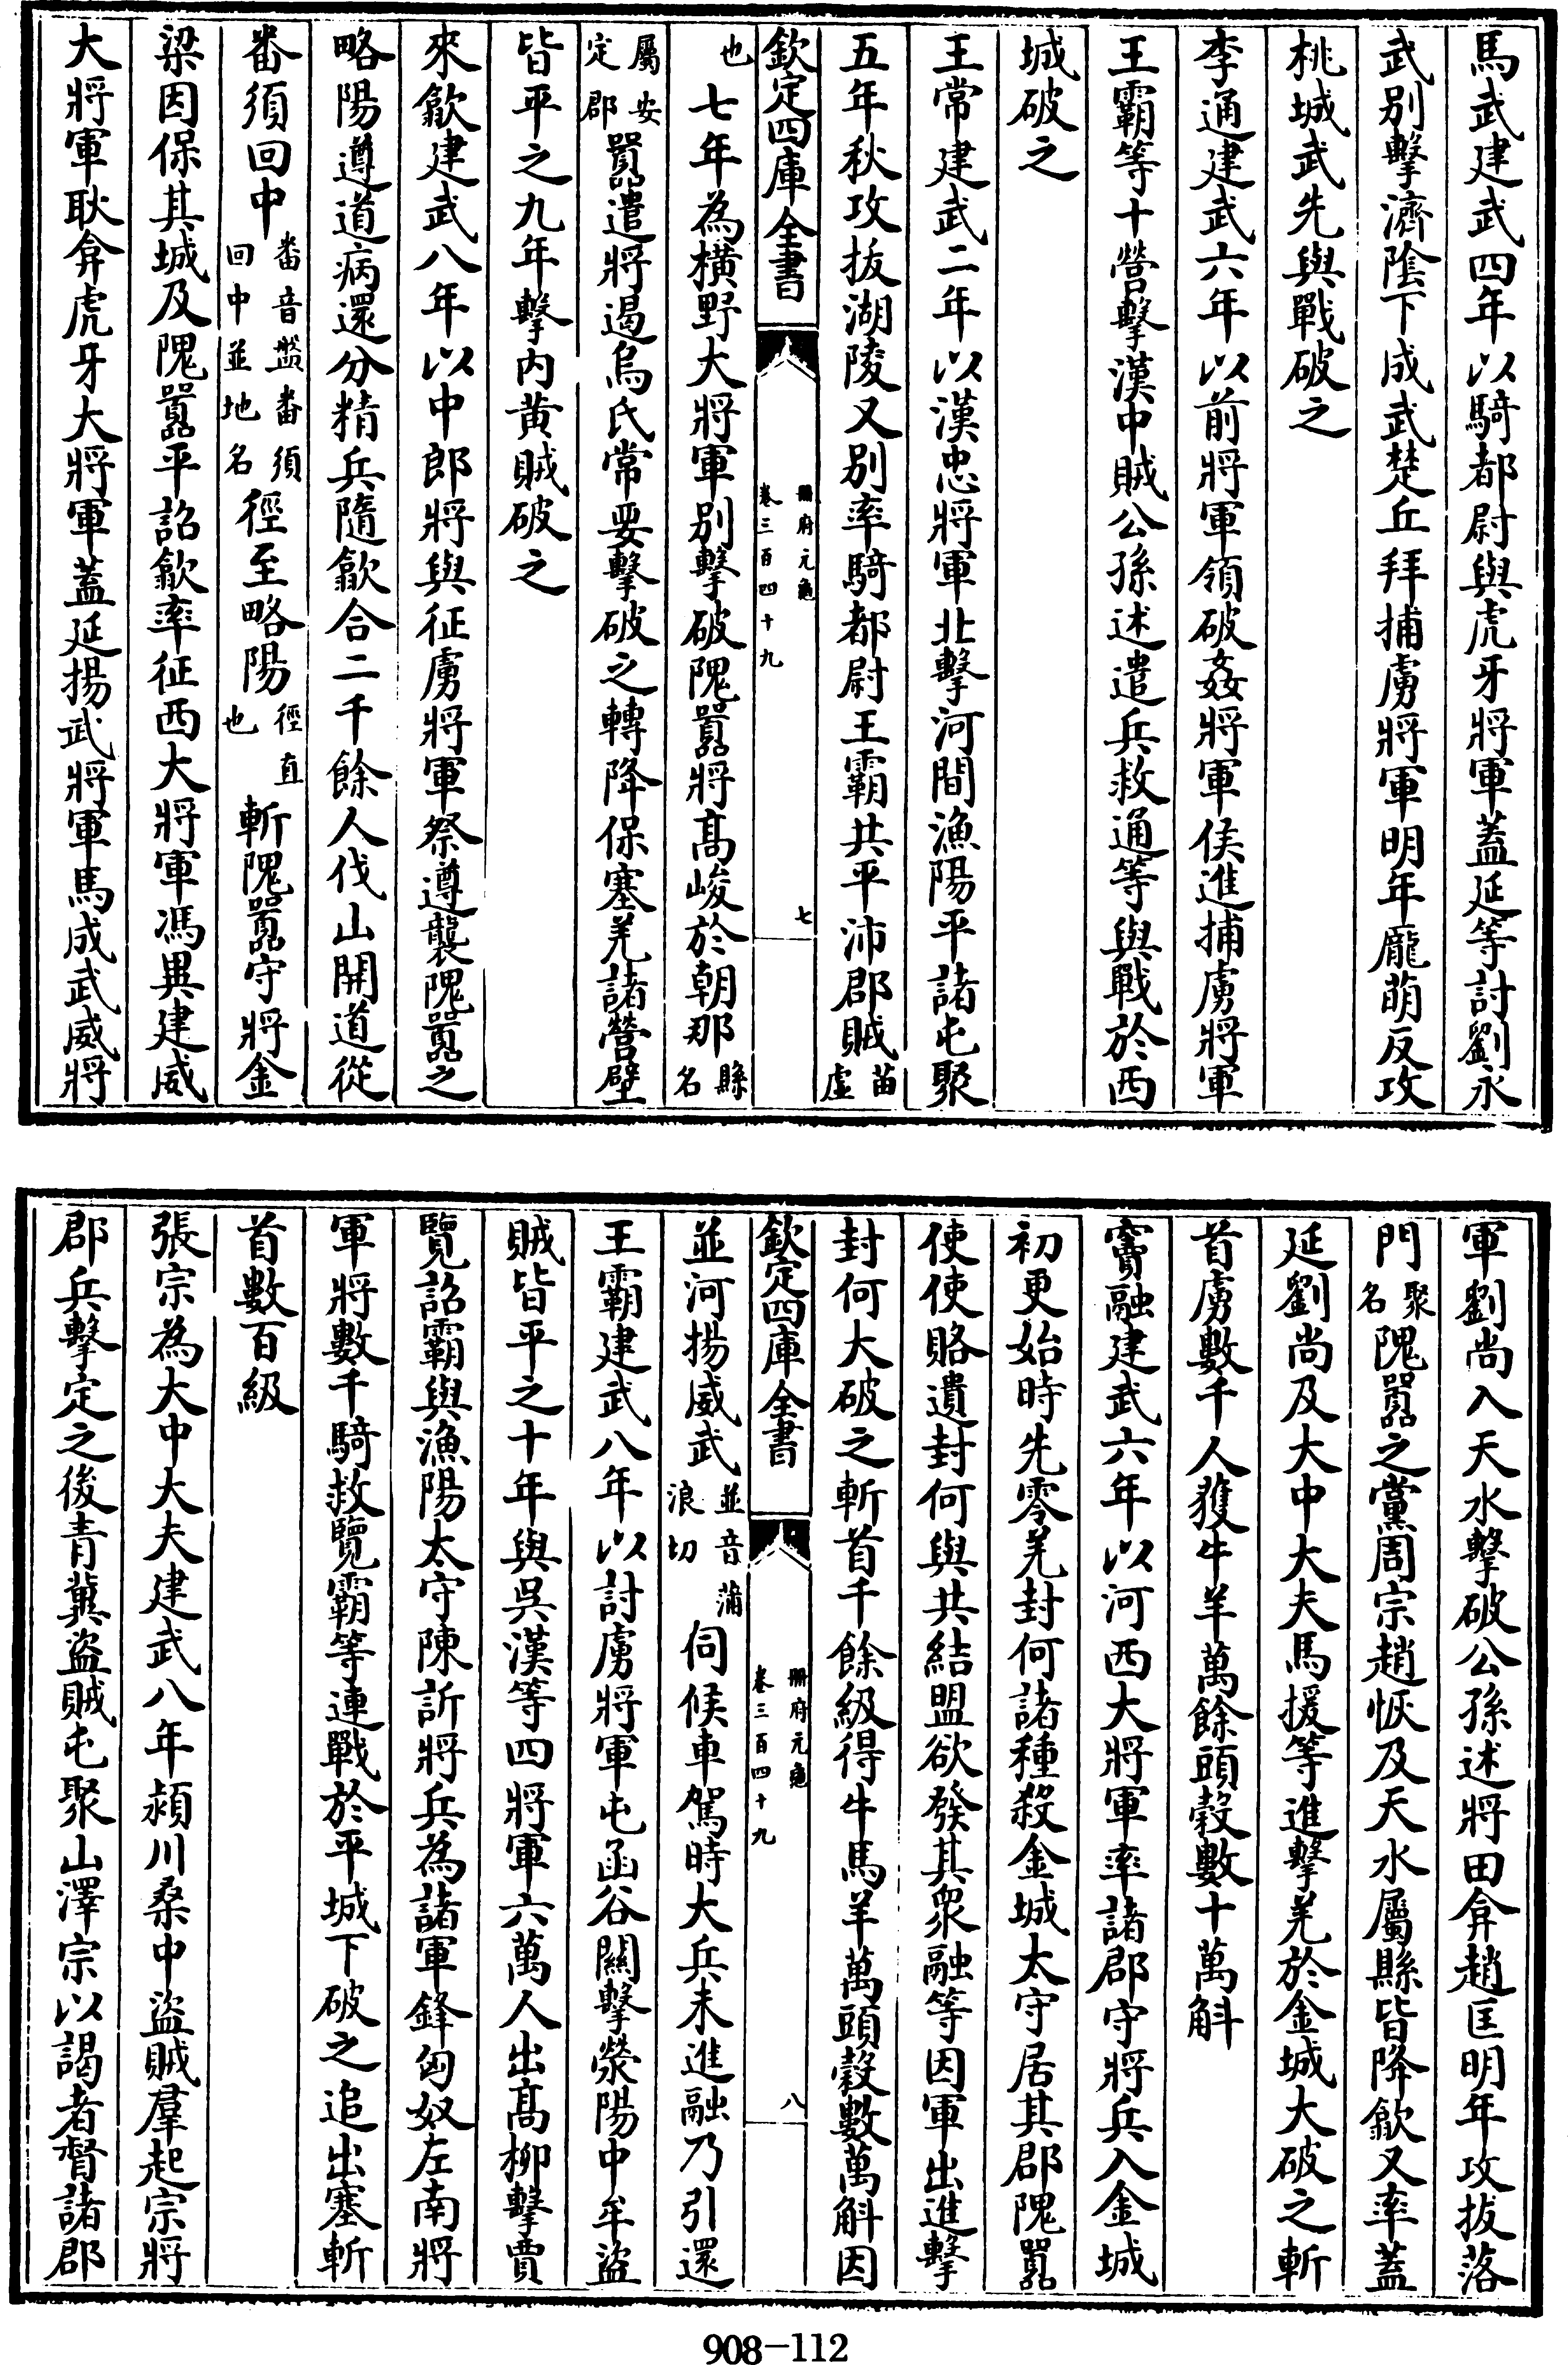 馬武建武四年以騎都尉與虎牙將軍蓋延等討劉永
武別擊濟隂下成武楚丘拜捕虜將軍明年龐萌反攻
桃城武先與戰破之
李通建武六年以前將軍領破姦將軍侯進捕虜將軍
王霸等十營擊漢中賊公孫述遣兵救通等與戰於西
城破之
王常建武二年以漢忠將軍北擊河間漁陽平諸屯聚
五年秋攻拔湖陵又別率騎都尉王霸共平沛郡賊苗虛
欽定四庫全書
冊府元龜
卷三百四十九
七
也七年為横野大將軍別擊破隗囂將髙峻於朝那縣名
屬安定郡囂遣將過烏氏常要擊破之轉降保塞羌諸營壁
皆平之九年擊内黄賊破之
來歙建武八年以中郎將與征虜將軍祭遵襲隗囂之
略陽遵道病還分精兵隨歙合二千餘人伐山開道從
番須回中番音盤番須回中並地名徑至略陽徑直也斬隗囂守將金
梁因保其城及隗囂平詔歙率征西大將軍馮異建威
大將軍耿弇虎牙大將軍蓋延揚武將軍馬成武威將
軍劉尚入天水擊破公孫述將田弇趙匡明年攻拔落
門聚名隗囂之黨周宗趙恢及天水屬縣皆降歙又率蓋
延劉尚及大中大夫馬援等進擊羌於金城大破之斬
首虜數千人獲牛羊萬餘頭穀數十萬斛
竇融建武六年以河西大將軍率諸郡守將兵入金城
初更始時先零羌封何諸種殺金城太守居其郡隗囂
使使賂遺封何與共結盟欲發其衆融等因軍出進擊
封何大破之斬首千餘級得牛馬羊萬頭穀數萬斛因
欽定四庫全書
冊府元龜
卷三百四十九
八
並河揚威武並音蒲浪切伺候車駕時大兵未進融乃引還
王霸建武八年以討虜將軍屯函谷關擊滎陽中牟盜
賊皆平之十年與吳漢等四將軍六萬人出髙柳擊賈
覽詔霸與漁陽太守陳訢將兵為諸軍鋒匈奴左南將
軍將數千騎救覽霸等連戰於平城下破之追出塞斬
首數百級
張宗為大中大夫建武八年潁川桑中盜賊羣起宗將
郡兵擊定之後青冀盜賊屯聚山澤宗以謁者督諸郡
908-112